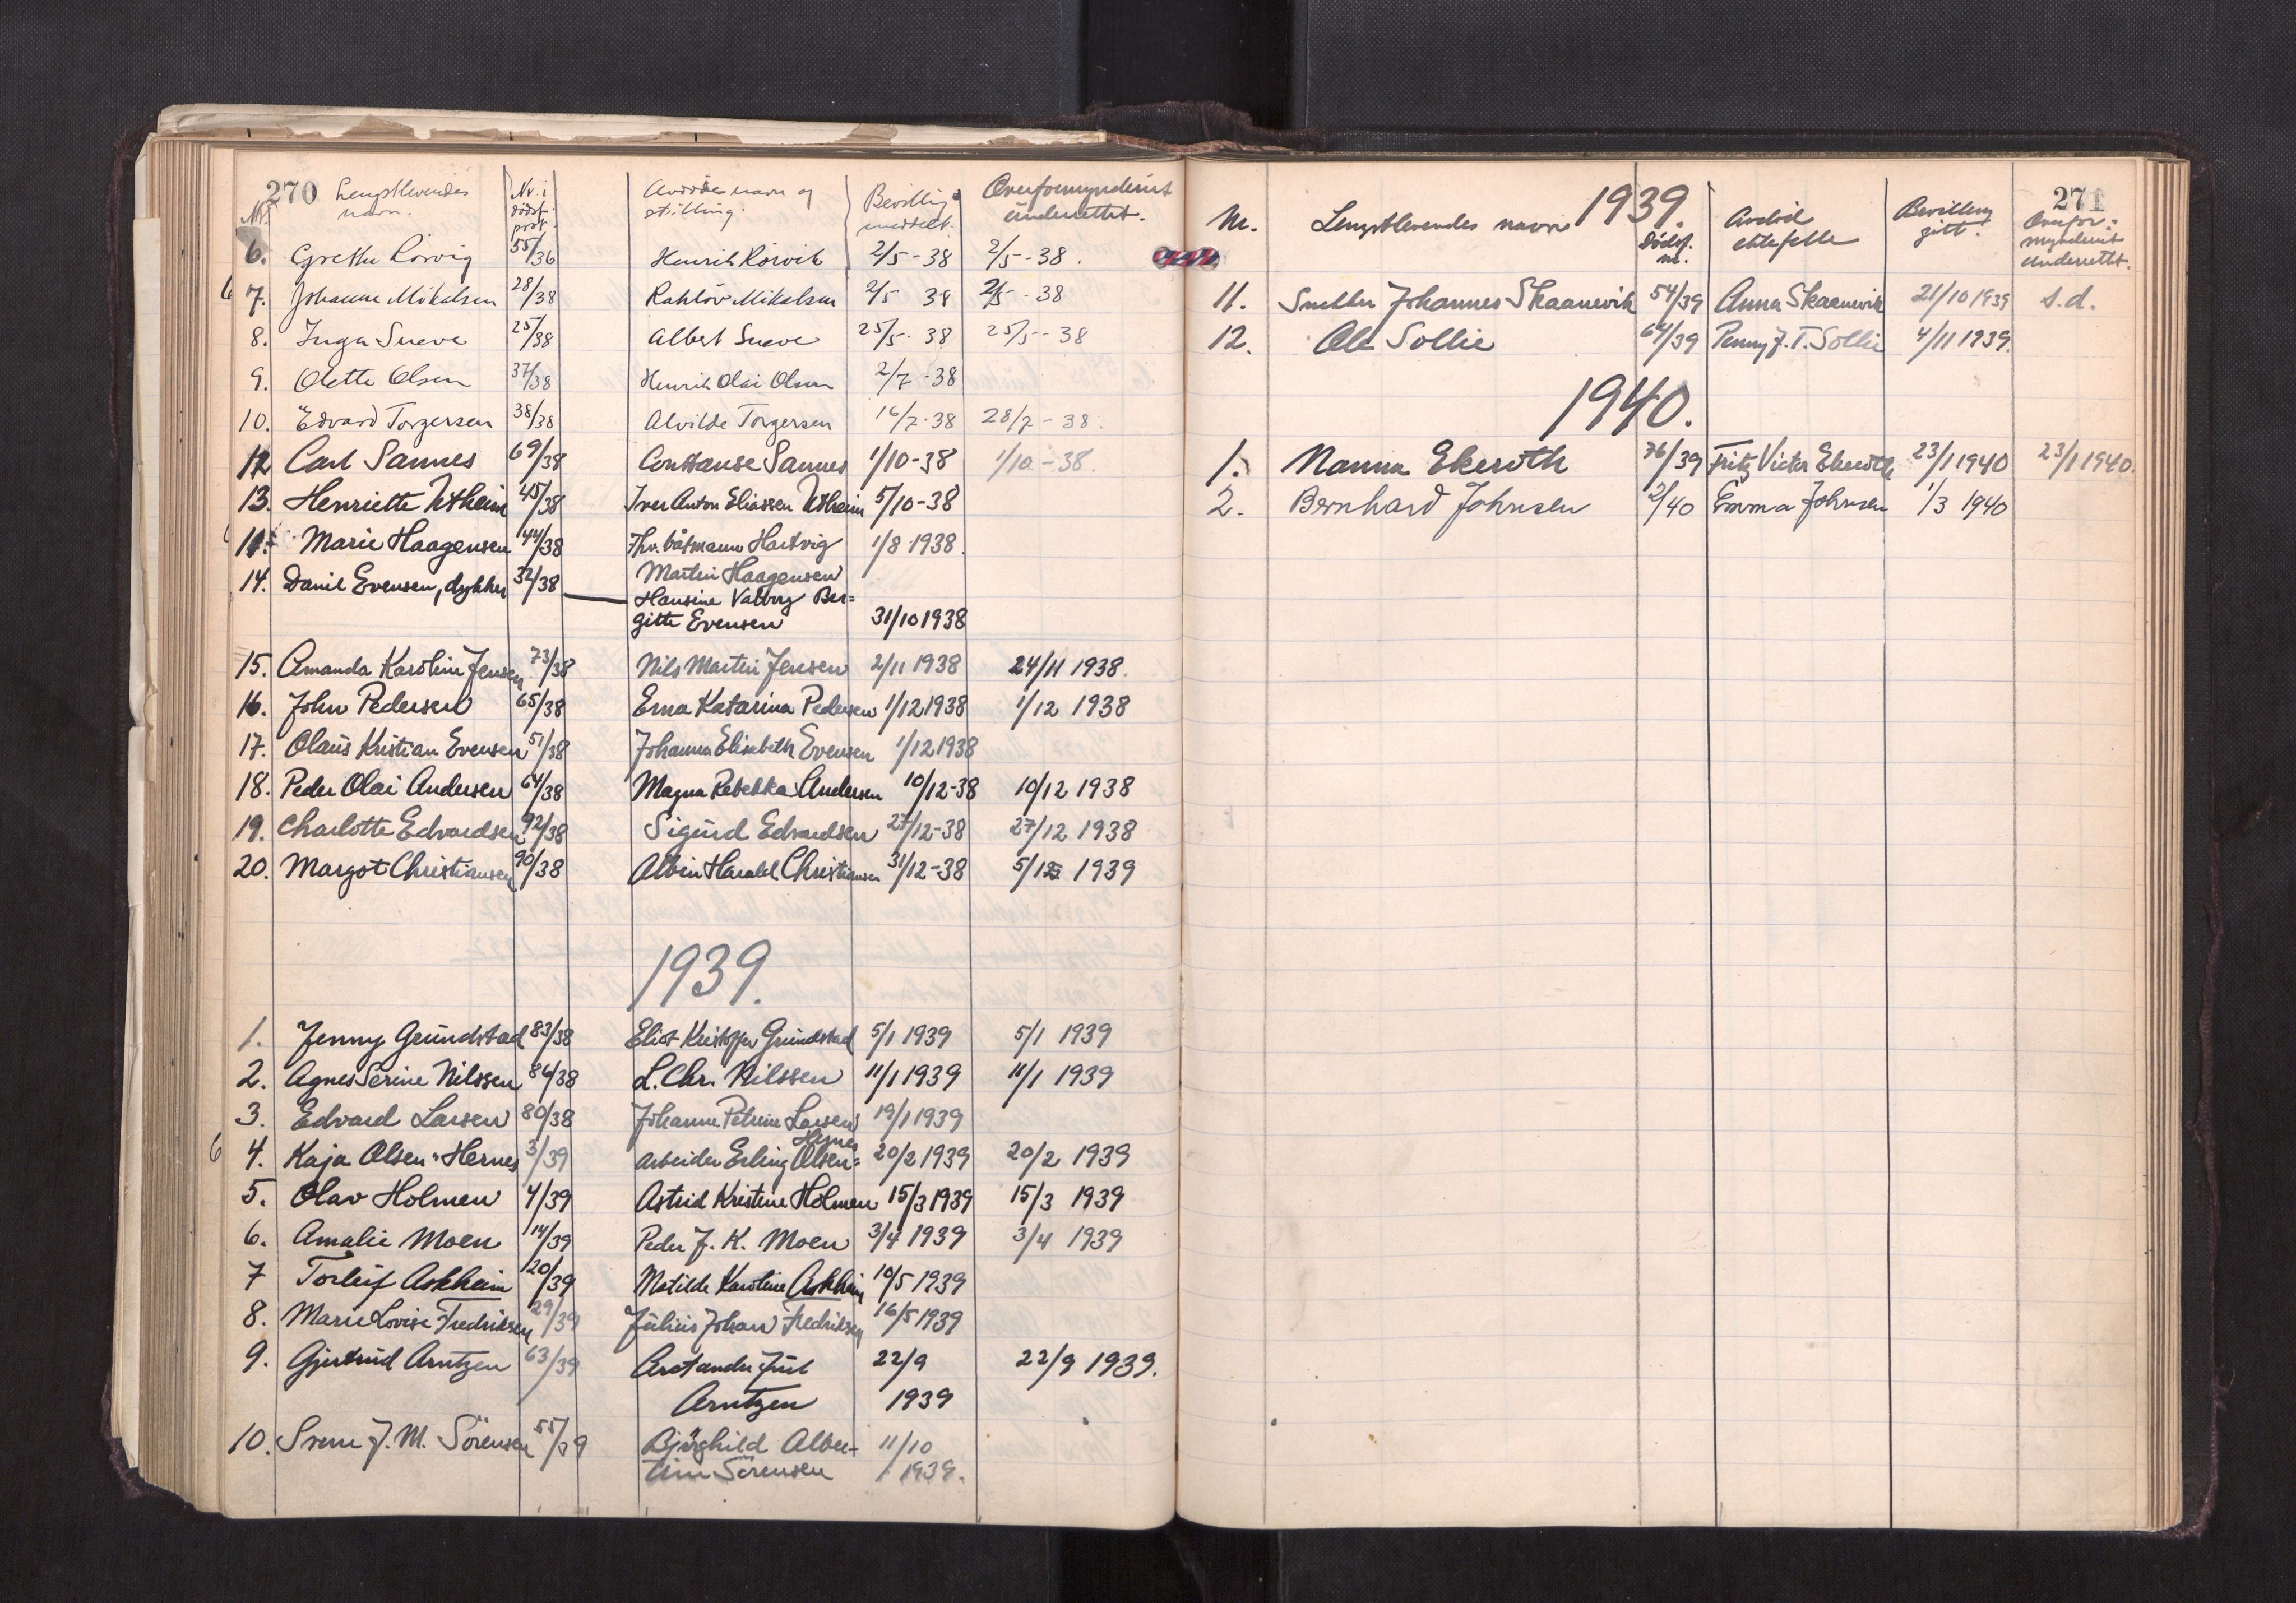 270
Nr. Lengstlevendes navn. Nr. i dødsf. prot. Avdødes navn og stilling. Bevillig. meddelt. Overformynderiet underrettet.
6. Grethe Rörvig 55/36 Henrik Rörvik 2/5-38 2/5-38.
7. Johanne Mikalsen 28/38 Mikalsen 2/5 38 2/5-38
8. Inga Sneve 25/38 Albert Sneve 25/5-38 25/5-38
9. Olette Olsen 37/38 Henrik Olai Olsen 2/7-38
10. Edvard Torgersen 38/38 Alvilde Torgersen 16/7-38 28/7-38.
12 Carl Sannes 69/38 Constanse Sannes 1/10-38 1/10-38.
13. Henriette Utheim 45/38 Iver Anton Eliassen Utheim 5/10-38
11. Marie Haagensen 44/38 Fhv. båtsmann Hartvig 1/8 1938.
Martin Haagensen
14. Danil Evensen, dykker 32/38 Hansine Valborg Ber=
gitte Evensen 31/10 1938
15. Amanda Karoline Jensen 73/38 Nils Martin Jensen 2/11 1938 24/11 1938.
16. John Pedersen 65/38 Erna Katarina Pedersen 1/12 1938 1/12 1938
17. Olaus Kristian Evensen 51/38 Johanna Elisabeth Evensen 1/12 1938
18. Peder Olai Andersen 64/38 Magna Rebekka Andersen 10/12-38 10/12 1938
19. Charlotte Edvardsen 92/38 Sigurd Edvardsen 27/12-38 27/12 1938
20. Margot Christiansen 90/38 Albin Harald Christiansen 31/12-38 5/1 1939
1939.
1. Jenny Grundstad 83/38 Eliot Kristoffer Grundstad 5/1 1939 5/1 1939
2. Agnes Serine Nilssen 86/38 L. Chr. Nilssen 11/1 1939 11/1 1939
3. Edvard Larsen 80/38 Johanne Petrine Larsen 19/1 1939
Hernes
4. Kaja Olsen-Hernes 3/39 Arbeider Erling Olsen= 20/2 1939 20/2 1939
5. Olav Holmen 4/39 Astrid Kristine Holmen 15/3 1939 15/3 1939
6. Amalie Moen 14/39 Peder J. K. Moen 3/4 1939 3/4 1939
7 Torleif Askheim 20/39 Matilde Karoline Askheim 10/5 1939
8. Marie Lovise Fredriksen 29/39 Julius Johan Fredriksen 16/5 1939
9. Gjertrud Arntzen 63/39 Arctander Juul 22/9 22/9 1939.
Arntzen 1939
10. Svenn J. M. Sörensen 55/39 Bjørghild Alber-
tine Sörensen 11/10 1939.
271
1939.
Nr. Lengstlevendes navn Dødsf. nr. Avdød ektefelle Bevilling gitt. Overfor= mynderiet underrettet.
11. Snekker Johannes Skaanevik 54/39 Anna Skaanevik 21/10 1939 s.d.
12. Ole Sollie 64/39 Penny J. T. Sollie 4/11 1939.
1940.
1. Nanna Ekeroth 76/39 Fritz Victor Ekeroth 23/1 1940 23/1 1940.
2. Bernhard Johnsen 2/40 Emma Johnsen 1/3 1940